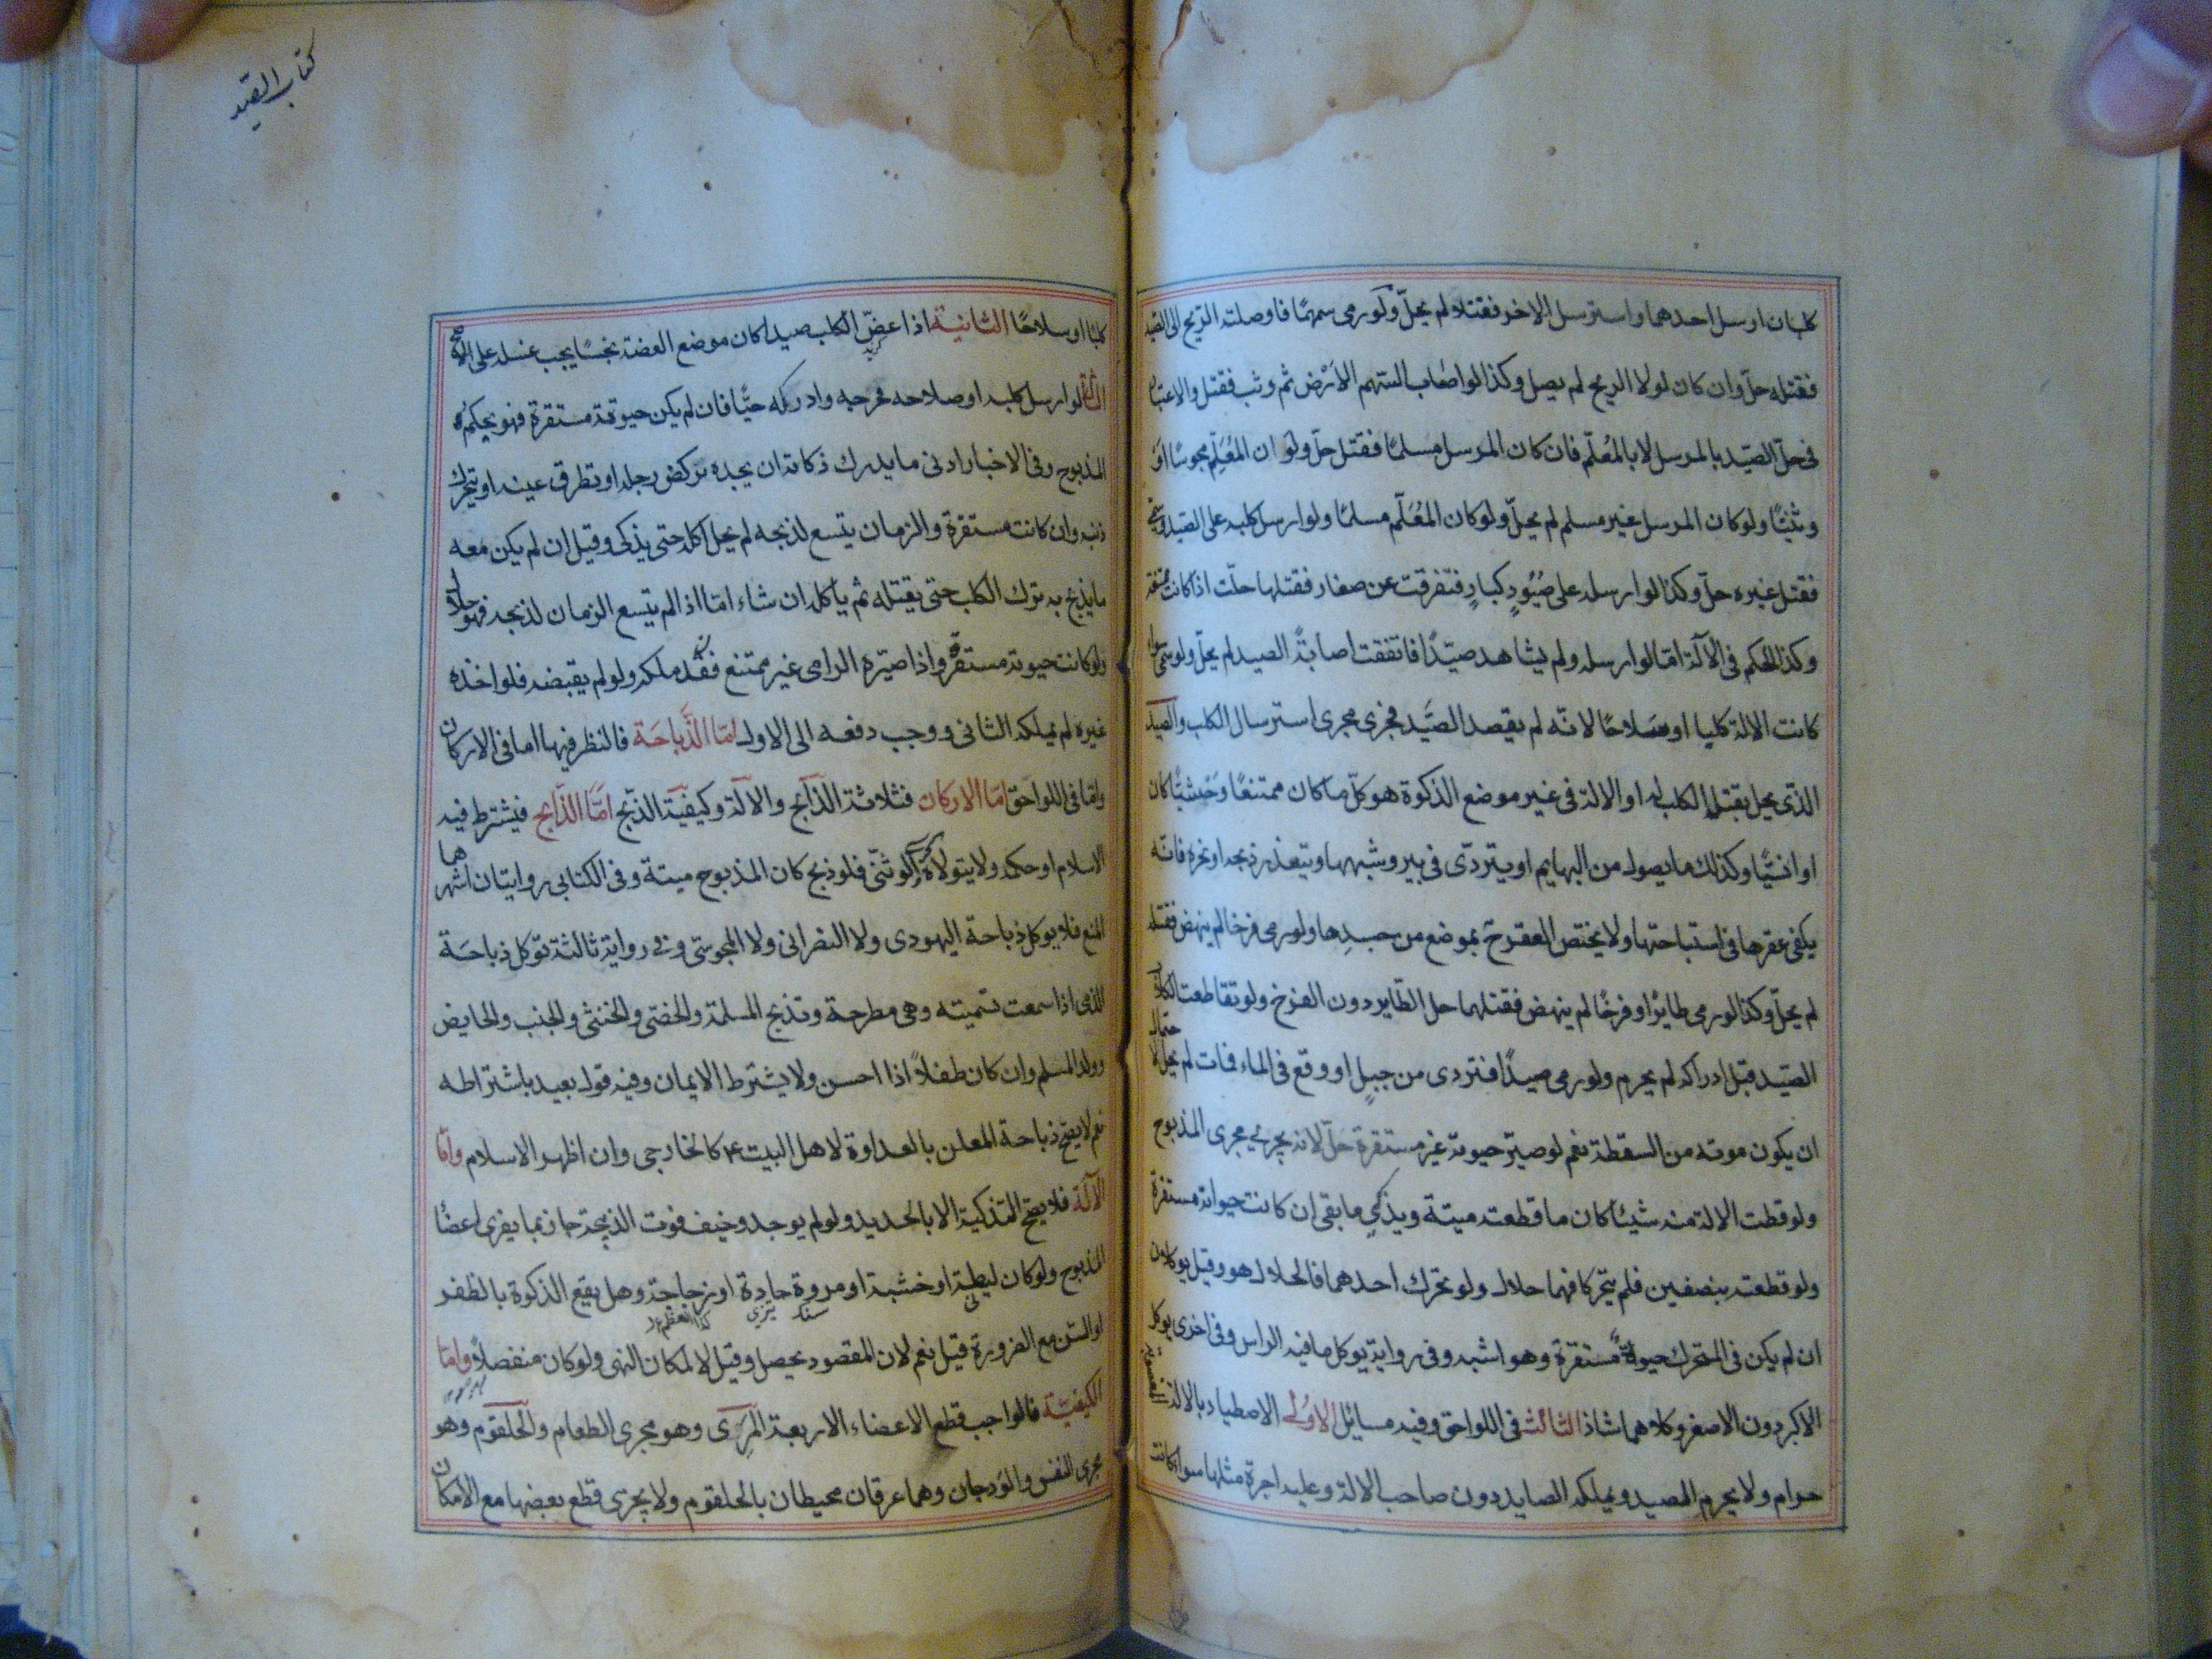 كلبان ارسل احدهما واسترسل الاخر فقتلاه لم يحلّ ولو رمى سهمًا فاوصلته الرّيح الى الصّيد
فقتله حلّ وان كان لولا الريح لم يصل وكذا لو اصاب السّهم الارض ثم وثب فقتل والاعتبار
فى حلّ الصّيد بالمرسل لا بالمُعلّم فان كان المرسل مسلمًا فقتل حلّ ولو ان المُعَلِّم مجوسًا اَو
وثنيًّا ولو كان المرسل غير مسلم لم يحلّ ولو كان المُعَلّم مسلمًا ولو ارسل كلبه على الصّيد وسمّى
فقتل غيره حلّ وكذا لو ارسله على صُيُودٍ كبارٍ فتفرقت عن صغار فقتلها حلّت اذا كانت ممتنعة
وكذا الحكم فى الآلة امّا لو ارسله ولم يشاهد صيّدًا فاتفقت اصابةً الصيد لم يحلّ ولو سمّى سواء
كانت الالة كلبا او سَلاحًا لانّه لم يقصد الصَّيد فجرى مجرى استرسال الكلب والصّيد
الذّى يحل بقتل الكلب له او الالة فى غير موضع الذكوة هو كلّ ما كان ممتنعًا وَحْشيًّا كان
او انسيًّا وكذلك ما يصول من البهايم او يتردّى فى بير وشبهها ويتعذر ذبحه او نحره فانّه
يكفى عقرها فى استباحتها ولا يختص العقر ح بموضع من جسدِها ولو رمى فرخا لم ينهض فقتله
لم يحلّ وكذا لو رمى طائرًا وفرخًا لم ينهض فقتلهما حل الطّاير دون الفرخ ولو تقاطعت الكلاب
الصّيد قبل ادراكه لم يحرم ولو رمى صيدًا فتردى من جبلٍ او وقع فى الماء فمات لم يحل لاحتمال
ان يكون موته من السقطة نعم لو صيّر حيوته غير مستقرة حلّ لانه يجرى مجرى المذبوح
ولو قطت الالة منه شيئًا كان ما قطعته ميتة ويذكى ما بقى ان كانت حيواته مستقرة
ولو قطعته بنصفين فلم يتحركا فهما حلال ولو تحرك احدهما فالحلال هو وقيل يوكلان
ان لم يكن فى المتحرك حيوة مستقرة وهو اشبه وفى رواية يوكل ما فيه الراس وفى اخرى يوكل
الاكبر دون الاصغر وكلاهما شاذ الثالث فى اللواحق وفيه مسائل الاولى الاصطياد بالالة المغصوبة
حرام ولا يحرم المصيد ويملكه الصايد دون صاحب الالة وعليه اجرة مثلها سواء كانت
كتاب الصّيد
كلبًا او سلاحًا الثانية اذا عضّ الكلب صيدا كان موضع العضة نجسًا يجب غسله على الاصح
الثالثة لو ارسل كلبه او سلاحه فجرحه وادركه حيًّا فان لم يكن حيوته مستقرة فهو بحكم
المذبوح وفى الاخبار ادنى ما يدرك ذكاته ان يجده يركض رجله او تطرف عينه او يتحرك
ذنبه وان كانت مستقرة والزمان يتسع لذبحه لم يحل اكله حتى يذكى وقيل ان لم يكن معه
ما يذبح به ترك الكلب حتى يقتله ثم ياكله ان شاء امّا اذا لم يتسع الزمان لذبحه فهو حلال
ولو كانت حيوته مستقرة واذا صيّره الرامى غير ممتنع فقد ملكه ولو لم يقبضه فلو اخذه
غيره لم يملكه الثانى ووجب دفعه الى الاول امّا الذَّباحَة فالنظر فيها اما فى الاركان
وامّا فى اللواحق امّا الاركان فثلاثة الذّابح والآلة وكيفيّة الذّبح امَّا الذّابح فيشترط فيه
الاسلام او حكمه ولا يتولاه الوثنى فلو ذبح كان المذبوح ميتة وفى الكتابى روايتان اشهرهما
المنع فلا يوكل ذباحة اليهودى ولا النصرانى ولا المجوسى وفى رواية ثالثة توكل ذباحَة
الذمى اذا سمعت تسميته وهى مطرحة وتذبح المسلمة والخصّى والخنثى والجنب والحايض
وولد المسلم وان كان طفلاً اذا احسن ولا يشترط الايمان وفيه قول بعيد باشتراطه
نعم لا يصحّ ذباحة المعلن بالعداوة لاهل البيت ع كالخارجى وان اظهر الاسلام وامّا
الآلة فلا يصحّ التذكية الا بالحديد ولو لم يوجد وخيف فوت الذبيحة جاز بما يفرى اعضاء
المذبوح ولو كان ليطة او خشبة او مروة حادة او زجاجة وهل يقع الذكوة بالظفر
او السّن مع الضرورة قيل نعم لان المقصود يحصل وقيل لا لمكان النهى ولو كان منفصلاً وامّا
الكيفيّة فالواجب قطع الاعضاء الاربعة المَرِّى وهو مجرى الطعام والحلقوم وهو
مجرى النفس والوَدجان وهما عرقان محيطان بالحلقوم ولا يجزى قطع بعضها مع الامكان